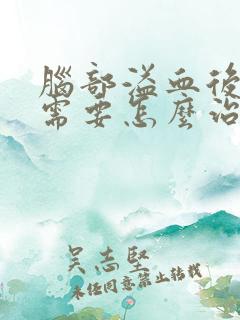 腦部溢血後
需要怎麼治
吳志堅
未經同意禁止轉載